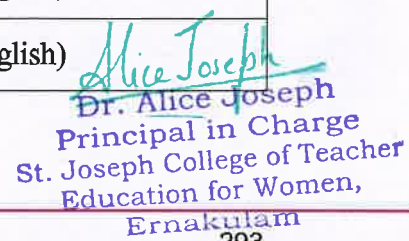 glish)
Alice Joseph
Dr. Alice Joseph
Principal in Charge
St. Joseph College of Teacher
Education for Women,
Ernakulam
293